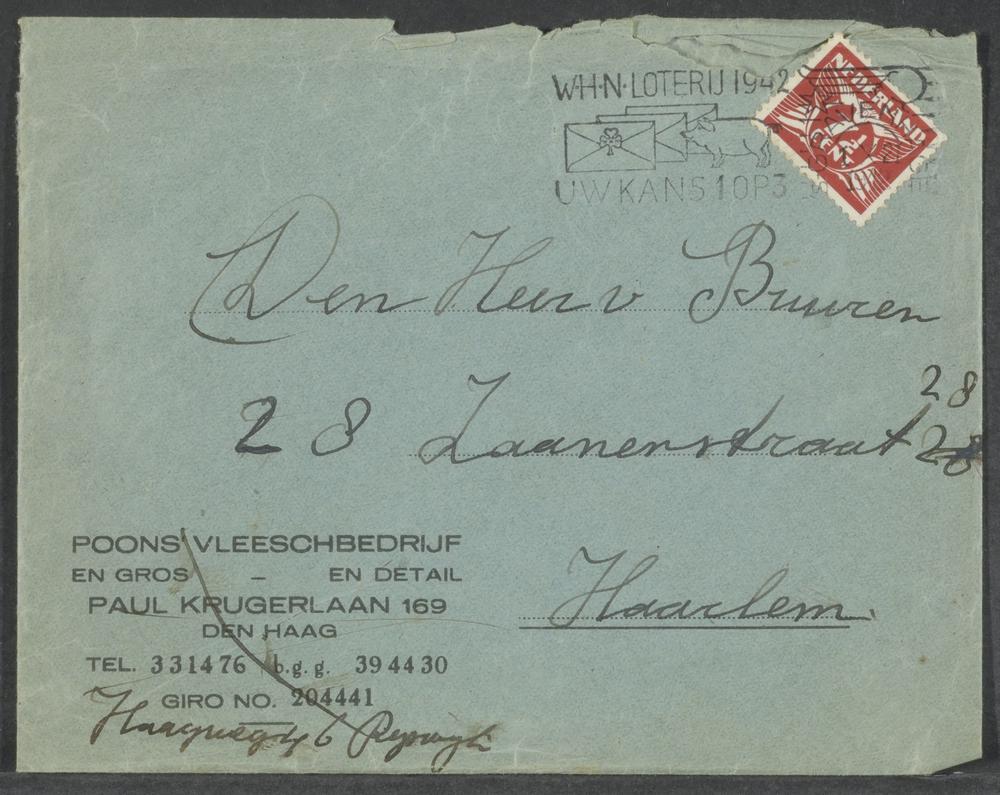 W·H·N·LOTERIJ 1942
UW KANS 1 OP 3
NEDERLAND
CENT
Den Heer v Buuren
28
28 Zaanenstraat 28
POONS' VLEESCHBEDRIJF
EN GROS – EN DETAIL
PAUL KRUGERLAAN 169
DEN HAAG
TEL. 331476 b.g.g. 394430
GIRO NO. 204441
Haarlem.
Haagweg 6 Rijswijk